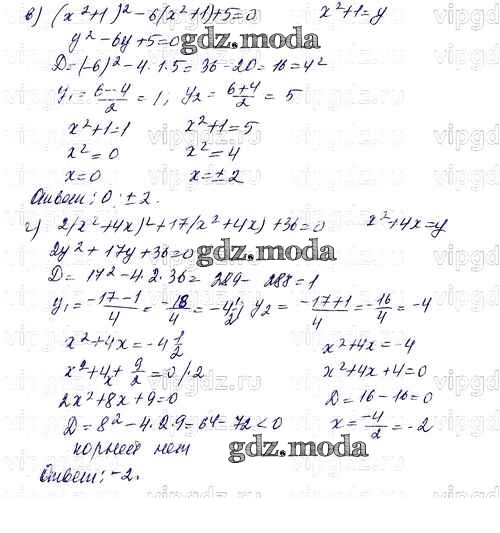 в) (x²+1)²-6(x²+1)+5=0 x²+1=y
y²-6y+5=0
D=(-6)²-4·1·5=36-20=16=4²
y₁=(6-4)/2=1; y₂=(6+4)/2=5
x²+1=1 x²+1=5
x²=0 x²=4
x=0 x=±2
Ответ: 0; ±2.
г) 2(x²+4x)²+17(x²+4x)+36=0 x²+4x=y
2y²+17y+36=0
D=17²-4·2·36=289-288=1
y₁=(-17-1)/4=-18/4=-4 1/2; y₂=(-17+1)/4=-16/4=-4
x²+4x=-4 1/2 x²+4x=-4
x²+4x+9/2=0 /·2 x²+4x+4=0
2x²+8x+9=0 D=16-16=0
D=8²-4·2·9=64-72<0 x=-4/2=-2
корней нет
Ответ: -2.
gdz.moda
gdz.moda
gdz.moda
vipgdz.moda